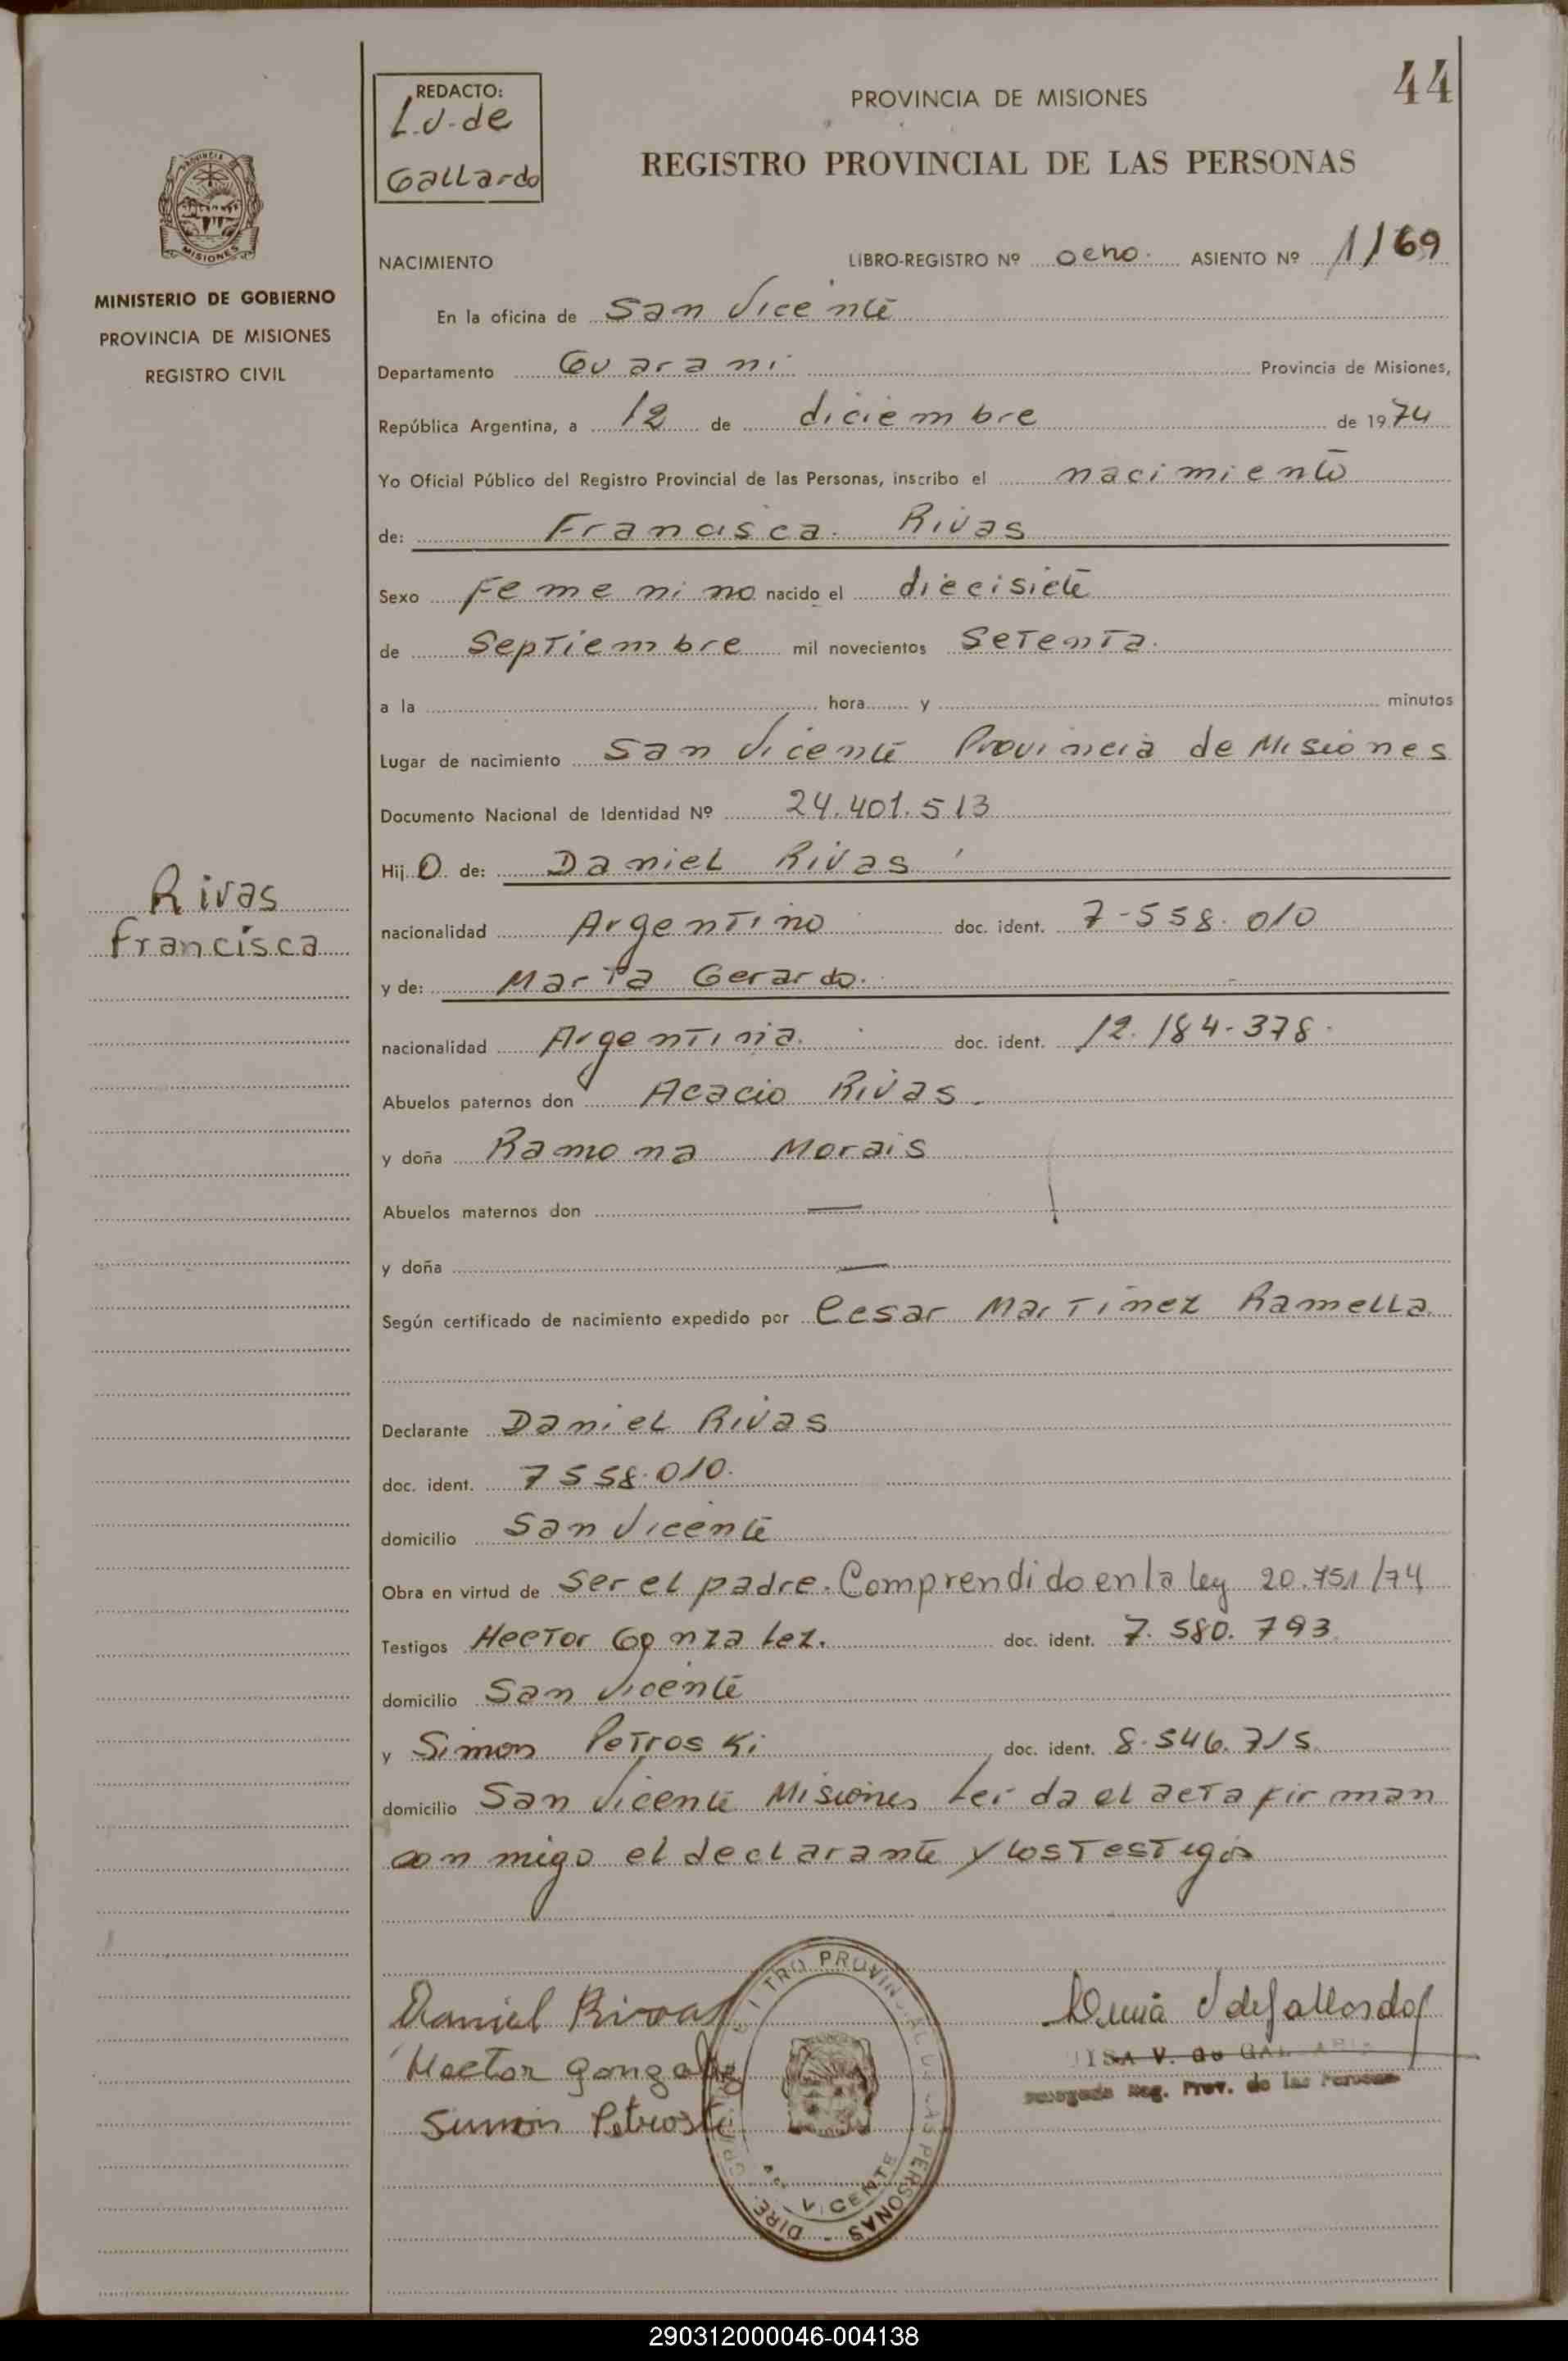 44
REDACTO:
L.V. de
Gallardo
PROVINCIA DE MISIONES
REGISTRO PROVINCIAL DE LAS PERSONAS
PROVINCIA
MISIONES
MINISTERIO DE GOBIERNO
PROVINCIA DE MISIONES
REGISTRO CIVIL
NACIMIENTO LIBRO-REGISTRO Nº ocho. ASIENTO Nº 1/69
En la oficina de San Vicente
Departamento Guarani Provincia de Misiones,
República Argentina, a 12 de diciembre de 1974
Yo Oficial Público del Registro Provincial de las Personas, inscribo el nacimiento
de: Francisca Rivas
Sexo Femenino nacido el diecisiete
de Septiembre mil novecientos Setenta.
a la hora y minutos
Lugar de nacimiento San Vicente Provincia de Misiones
Documento Nacional de Identidad Nº 24.401.513
Hij O de: Daniel Rivas
Rivas
Francisca
nacionalidad Argentino doc. ident. 7-558.010
y de: Marta Gerardo.
nacionalidad Argentina. doc. ident. 12.184-378.
Abuelos paternos don Acacio Rivas
y doña Ramona Morais
Abuelos maternos don —
y doña —
Según certificado de nacimiento expedido por Cesar Martinez Ramella
Declarante Daniel Rivas
doc. ident. 7558.010.
domicilio San Vicente
Obra en virtud de ser el padre. Comprendido en la ley 20.751/74
Testigos Hector Gonzalez. doc. ident. 7.580.793
domicilio San Vicente
y Simon Petroski doc. ident. 8.546.715
domicilio San Vicente Misiones Leida el acta firman
conmigo el declarante y los Testigos
Daniel Rivas
Hector Gonzalez
Simon Petroski
VICENTE
V. de
Reg. Prov. de las Personas
290312000046-004138